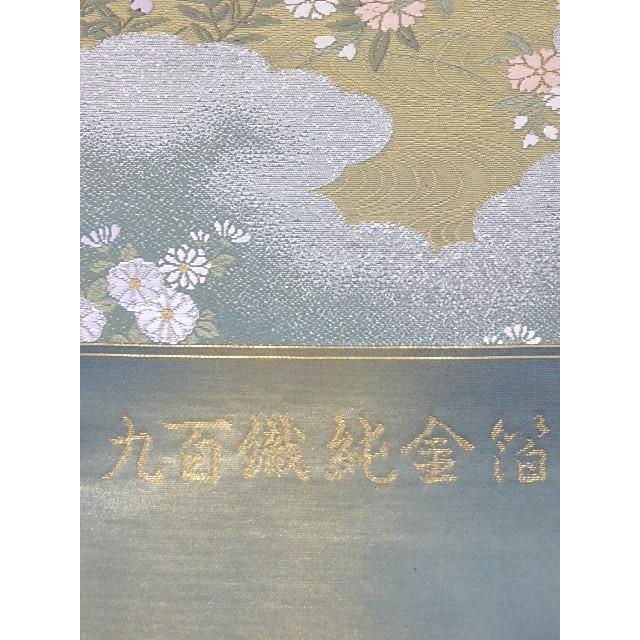 九百織純金箔